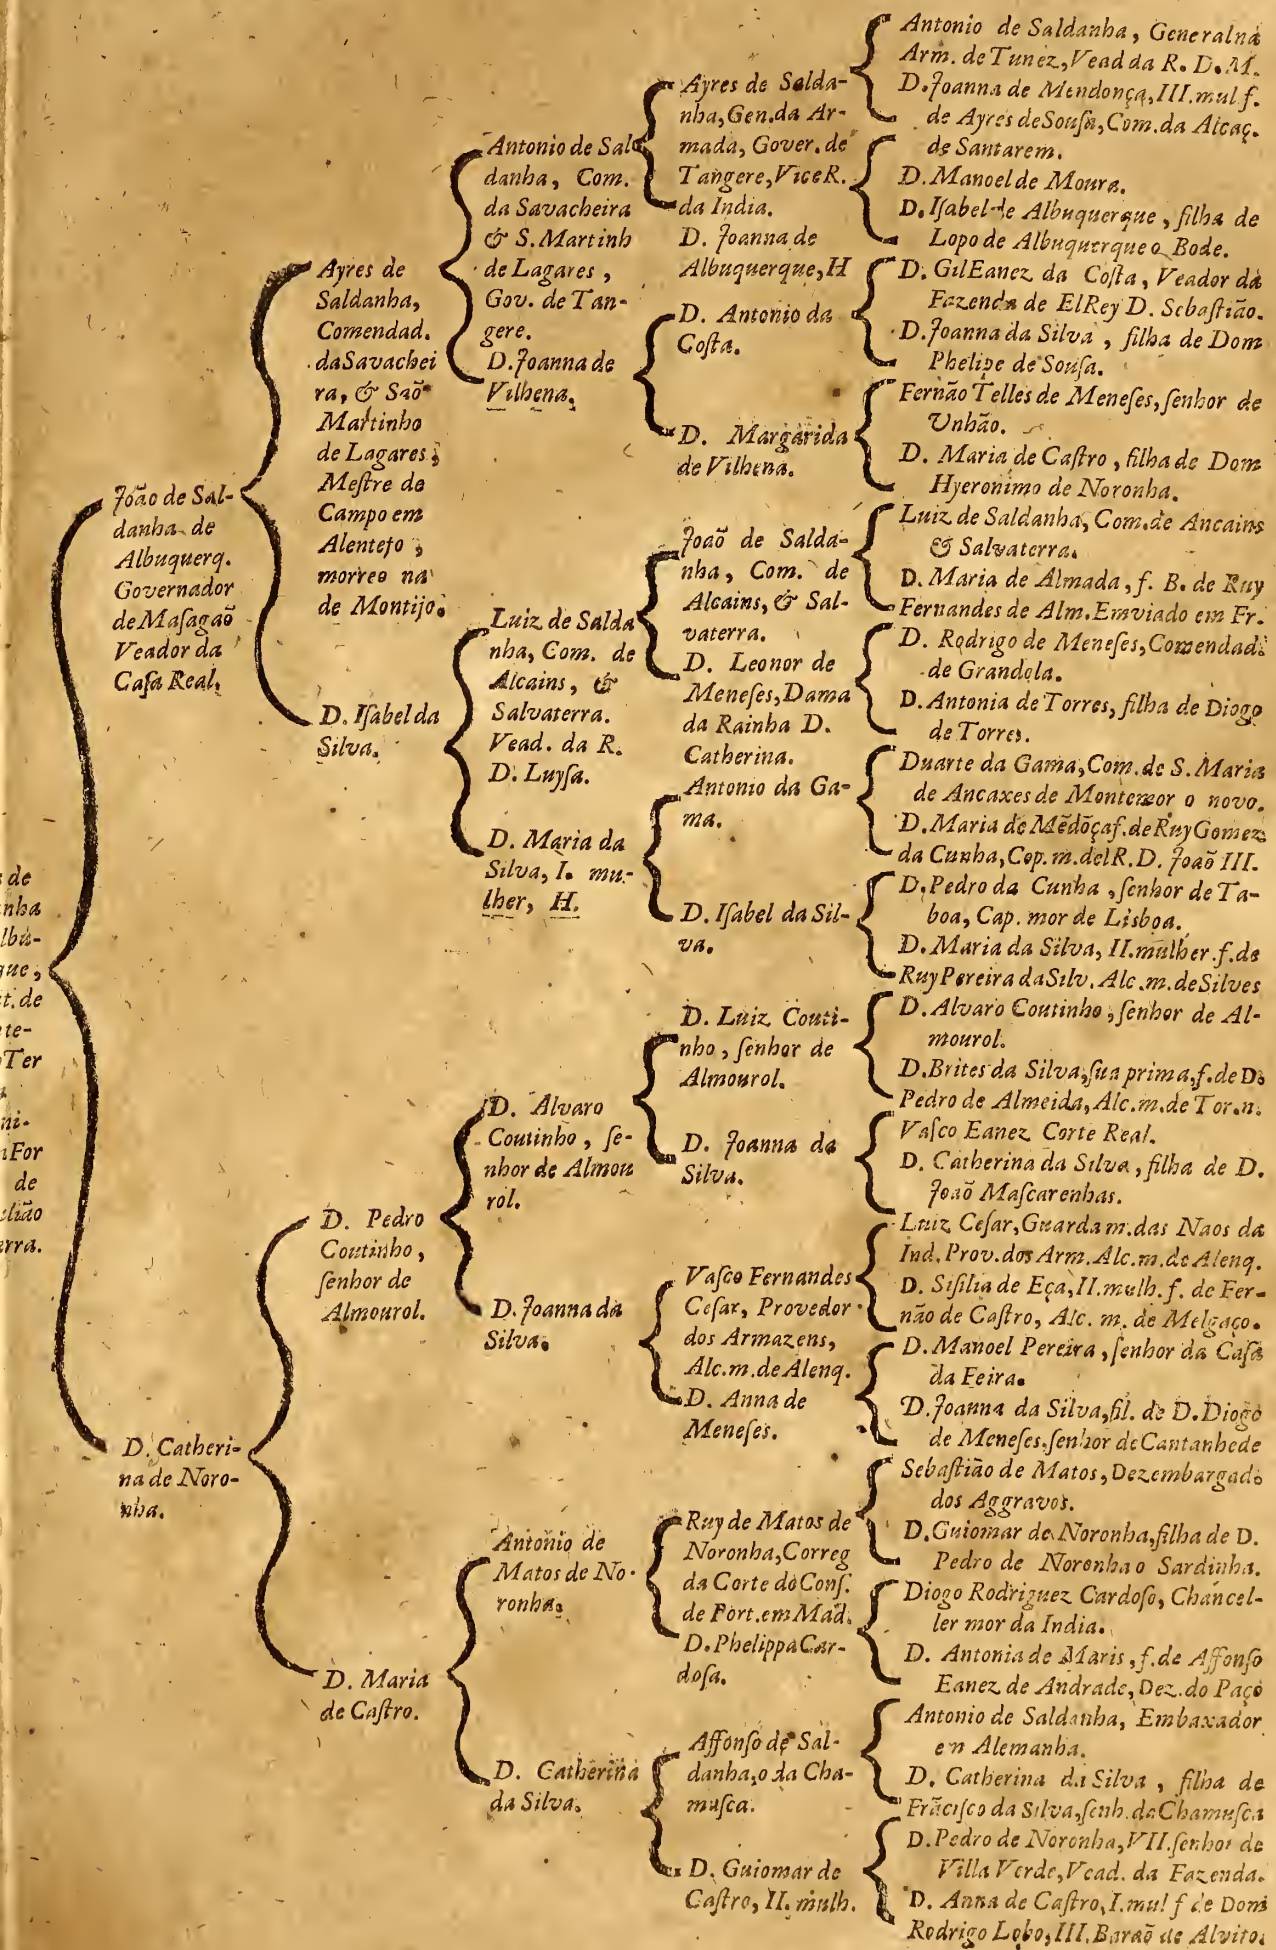 s de
nha
lbu-
que,
t. de
te-
Ter
a
ni-
For
de
elião
erra.
João de Sal-
danha de
Albuquerq.
Governador
de Masagaõ
Veador da
Casa Real.
D. Catheri-
na de Noro-
nha.
Ayres de
Saldanha,
Comendad.
da Savachei
ra, & Saõ
Martinho
de Lagares;
Mestre de
Campo em
Alentejo;
morreo na
de Montijo.
D. Isabel da
Silva.
D. Pedro
Coutinho,
senhor de
Almourol.
D. Maria
de Castro.
Antonio de Sal
danha, Com.
da Savacheira
& S. Martinh
de Lagares,
Gov. de Tan-
gere.
D. Joanna de
Vilhena.
Luiz de Salda
nha, Com. de
Alcains, &
Salvaterra.
Vead. da R.
D. Luysa.
D. Maria da
Silva, I. mu-
lher, H.
D. Alvaro
Coutinho, se-
nhor de Almou
rol.
D. Joanna da
Silva.
Antonio de
Matos de No-
ronha.
D. Catherina
da Silva.
Ayres de Salda-
nha, Gen. da Ar-
mada, Gover. de
Tangere, Vice R.
da India.
D. Joanna de
Albuquerque, H
D. Antonio da
Costa.
D. Margarida
de Vilhena.
Joaõ de Salda-
nha, Com. de
Alcains, & Sal-
vaterra.
D. Leonor de
Meneses, Dama
da Rainha D.
Catherina.
Antonio da Ga-
ma.
D. Isabel da Sil-
va.
D. Luiz Couti-
nho, senhor de
Almourol.
D. Joanna da
Silva.
Vasco Fernandes
Cesar, Provedor
dos Armazens,
Alc. m. de Alenq.
D. Anna de
Meneses.
Ruy de Matos de
Noronha, Correg
da Corte do Cons.
de Port. em Mad.
D. Phelippa Car-
dosa.
Affonso de Sal-
danha, o da Cha-
musca.
D. Guiomar de
Castro, II. mulh.
Antonio de Saldanha, General na
Arm. de Tunez, Vead da R. D. M.
D. Joanna de Mendonça, III. mul f.
de Ayres de Sousa, Com. da Alcaç.
de Santarem.
D. Manoel de Moura.
D. Isabel de Albuquerque, filha de
Lopo de Albuquerque o Bode.
D. Gil Eanez da Costa, Veador da
Fazenda de ElRey D. Sebastião.
D. Joanna da Silva, filha de Dom
Phelipe de Sousa.
Fernão Telles de Meneses, senhor de
Unhão.
D. Maria de Castro, filha de Dom
Hyeronimo de Noronha.
Luiz de Saldanha, Com. de Ancains
& Salvaterra.
D. Maria de Almada, f. B. de Ruy
Fernandes de Alm. Emviado em Fr.
D. Rodrigo de Meneses, Comendad.
de Grandola.
D. Antonia de Torres, filha de Diogo
de Torres.
Duarte da Gama, Com. de S. Maria
de Ancaxes de Montemor o novo.
D. Maria de Mẽdõça f. de Ruy Gomez
da Cunha, Cop. m. del R. D. Joaõ III.
D. Pedro da Cunha, senhor de Ta-
boa, Cap. mor de Lisboa.
D. Maria da Silva, II. mulher. f. de
Ruy Pereira da Silv. Alc. m. de Silves
D. Alvaro Coutinho, senhor de Al-
mourol.
D. Brites da Silva, sua prima, f. de D.
Pedro de Almeida, Alc. m. de Tor. n.
Vasco Eanez Corte Real.
D. Catherina da Silva, filha de D.
Joaõ Mascarenhas.
Luiz Cesar, Guarda m. das Naos da
Ind. Prov. dos Arm. Alc. m. de Alenq.
D. Sisilia de Eça, II. mulh. f. de Fer-
não de Castro, Alc. m. de Melgaço.
D. Manoel Pereira, senhor da Casa
da Feira.
D. Joanna da Silva, fil. de D. Diogo
de Meneses. senhor de Cantanhede
Sebastião de Matos, Dezembargado
dos Aggravos.
D. Guiomar de Noronha, filha de D.
Pedro de Noronha o Sardinha.
Diogo Rodriguez Cardoso, Chancel-
ler mor da India.
D. Antonia de Maris, f. de Affonso
Eanez de Andrade, Dez. do Paço
Antonio de Saldanha, Embaxador
en Alemanha.
D. Catherina da Silva, filha de
Frãcisco da Silva, senh. da Chamusca
D. Pedro de Noronha, VII. senhor de
Villa Verde, Vead. da Fazenda.
D. Anna de Castro, I. mul f de Dom
Rodrigo Lobo, III. Baraõ de Alvito.